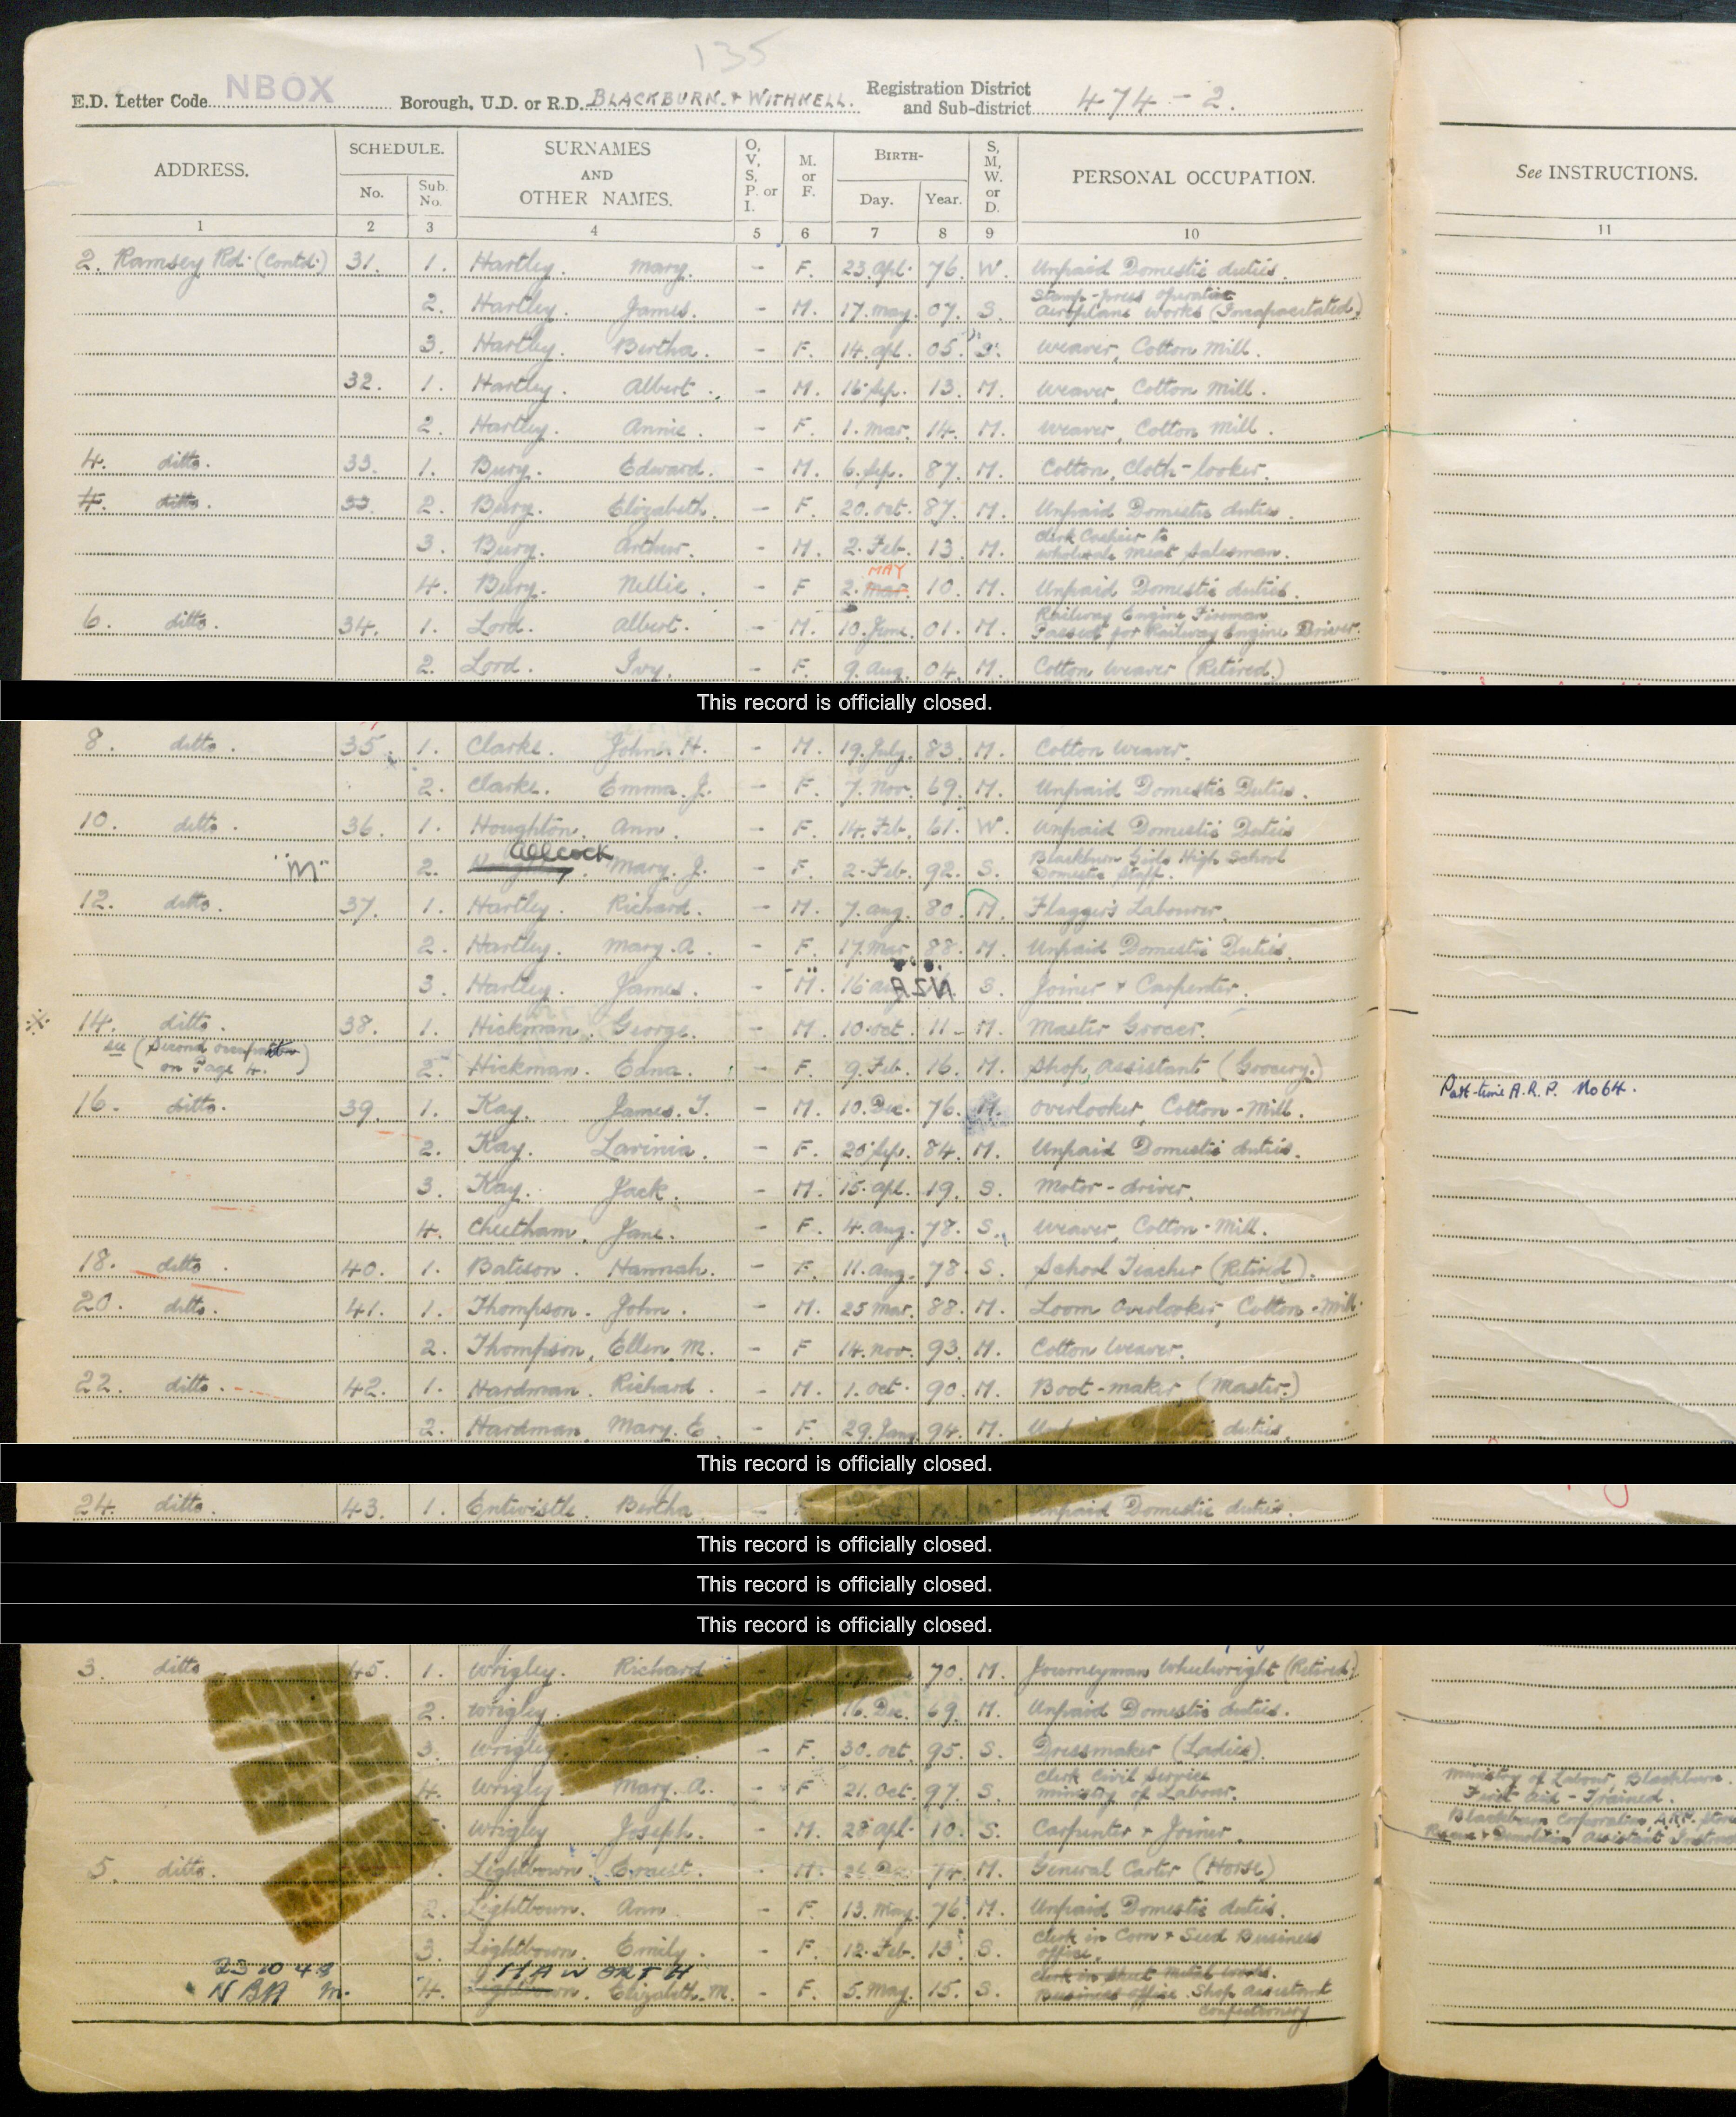 135
E.D. Letter Code NBOX Borough, U.D. or R.D. BLACKBURN & WITHNELL. Registration District and Sub-district 474 - 2.
ADDRESS. SCHEDULE. No. Sub. No. SURNAMES AND OTHER NAMES. O, V, S, P. or I. M. or F. BIRTH- Day. Year. S, M, W. or D. PERSONAL OCCUPATION. See INSTRUCTIONS.
1 2 3 4 5 6 7 8 9 10 11
2. Ramsey Rd. (Contd.) 31. 1. Hartley. Mary. - F. 23. Apl. 76. W. Unpaid Domestic duties.
2. Hartley. James. - M. 17. May. 07. S. Stamp-press operative Aeroplane Works (Incapacitated)
3. Hartley. Bertha. - F. 14. Apl. 05. S. Weaver, Cotton Mill.
32. 1. Hartley. Albert. - M. 16 Sep. 13. M. Weaver, Cotton Mill.
2. Hartley. Annie. - F. 1. Mar. 14. M. Weaver, Cotton Mill.
4. ditto. 33. 1. Bury. Edward. - M. 6. Sep. 87. M. Cotton, Cloth-looker.
4. ditto. 33. 2. Bury. Elizabeth. - F. 20. Oct. 87. M. Unpaid Domestic duties.
3. Bury. Arthur. - M. 2. Feb. 13 M. Clerk Cashier to wholesale meat salesman.
4. Bury. Nellie. - F 2. Mar. MAY 10. M. Unpaid Domestic duties.
6. ditto. 34. 1. Lord. Albert. - M. 10. June. 01. M. Railway Engine Fireman Passed for Railway Engine Driver.
2. Lord. Ivy. - F. 9. Aug. 04. M. Cotton Weaver (Retired.)
This record is officially closed.
8. ditto. 35. 1. Clarke. John. H. - M. 19. July. 83. M. Cotton Weaver.
2. Clarke. Emma. J. - F. 7. Nov. 69. M. Unpaid Domestic Duties.
10. ditto. 36. 1. Houghton. Ann. - F. 14. Feb. 61. W. Unpaid Domestic Duties
"M" 2. Allcock Mary. J. - F. 2. Feb. 92. S. Blackburn Girls High School Domestic Staff.
12. ditto. 37. 1. Hartley. Richard. - M. 7. Aug. 80. M. Flagger's Labourer.
2. Hartley. Mary. A. - F. 17. Mar 88. M. Unpaid Domestic Duties.
3. Hartley. James. - M. 16 Aug S. Joiner & Carpenter.
14. ditto. 38. 1. Hickman. George. - M. 10. Oct. 11 - M. Master Grocer.
see (Second occupation on Page 4.) 2. Hickman. Edna. - F. 9. Feb. 16. M. Shop Assistant (Grocery.)
Part-time A.R.P. No 64.
16. ditto. 39. 1. Kay. James. T. - M. 10. Dec. 76. M. Overlooker, Cotton-Mill.
2. Kay. Lavinia. - F. 20 Sep. 84. M. Unpaid Domestic duties.
3. Kay. Jack. - M. 15. Apl. 19. S. Motor-driver.
4. Cheetham. Jane. - F. 4. Aug. 78. S. Weaver, Cotton-Mill.
18. ditto. 40. 1. Bateson. Hannah. - F. 11. Aug. 78. S. School Teacher (Retired).
20. ditto. 41. 1. Thompson. John. - M. 25 Mar. 88. M. Loom Overlooker, Cotton-Mill.
2. Thompson. Ellen. M. - F 14. Nov. 93. M. Cotton Weaver.
22. ditto. 42. 1. Hardman. Richard. - M. 1. Oct. 90. M. Boot-maker (Master.)
2. Hardman. Mary. E. - F. 29. Jan. 94. M. Unpaid duties.
This record is officially closed.
24. ditto. 43. 1. Entwistle. Bertha. - Unpaid Domestic duties.
This record is officially closed.
This record is officially closed.
This record is officially closed.
3. ditto 45. 1. Wrigley. Richard 70. M. Journeyman Wheelwright (Retired.)
2. Wrigley. 16. Dec. 69. M. Unpaid Domestic duties.
3. Wrigley - F. 30. Oct. 95. S. Dressmaker (Ladies).
4. Wrigley Mary. A. - F 21. Oct. 97. S. Clerk Civil Service Ministry of Labour. Ministry of Labour, Blackburn. First Aid - Trained.
5. Wrigley Joseph. - M. 28 Apl. 10. S. Carpenter & Joiner. Blackburn Corporation, A.R.P. Assistant
5. ditto. Lightbown. Ernest. M. 74. M. General Carter (Horse)
2. Lightbown. Ann. - F. 13. May. 76. M. Unpaid Domestic duties.
3. Lightbown. Emily. - F. 12. Feb. 13. S. Clerk in Corn & Seed Business office.
23 10 43 NBA M. 4. Lightbown. HAWORTH Elizabeth. M. - F. 5. May. 15. S. Clerk in Sheet Metal Works. Business office. Shop Assistant Confectionery